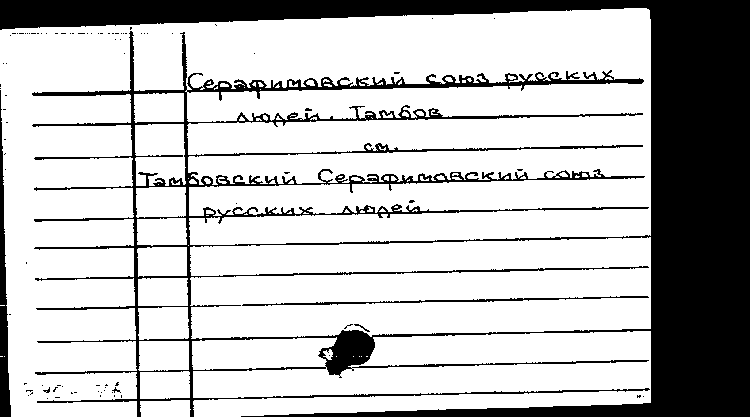 Серафимовский союз русских
людей. Тамбов
см.
Тамбовский Серафимовский союз
русских людей.